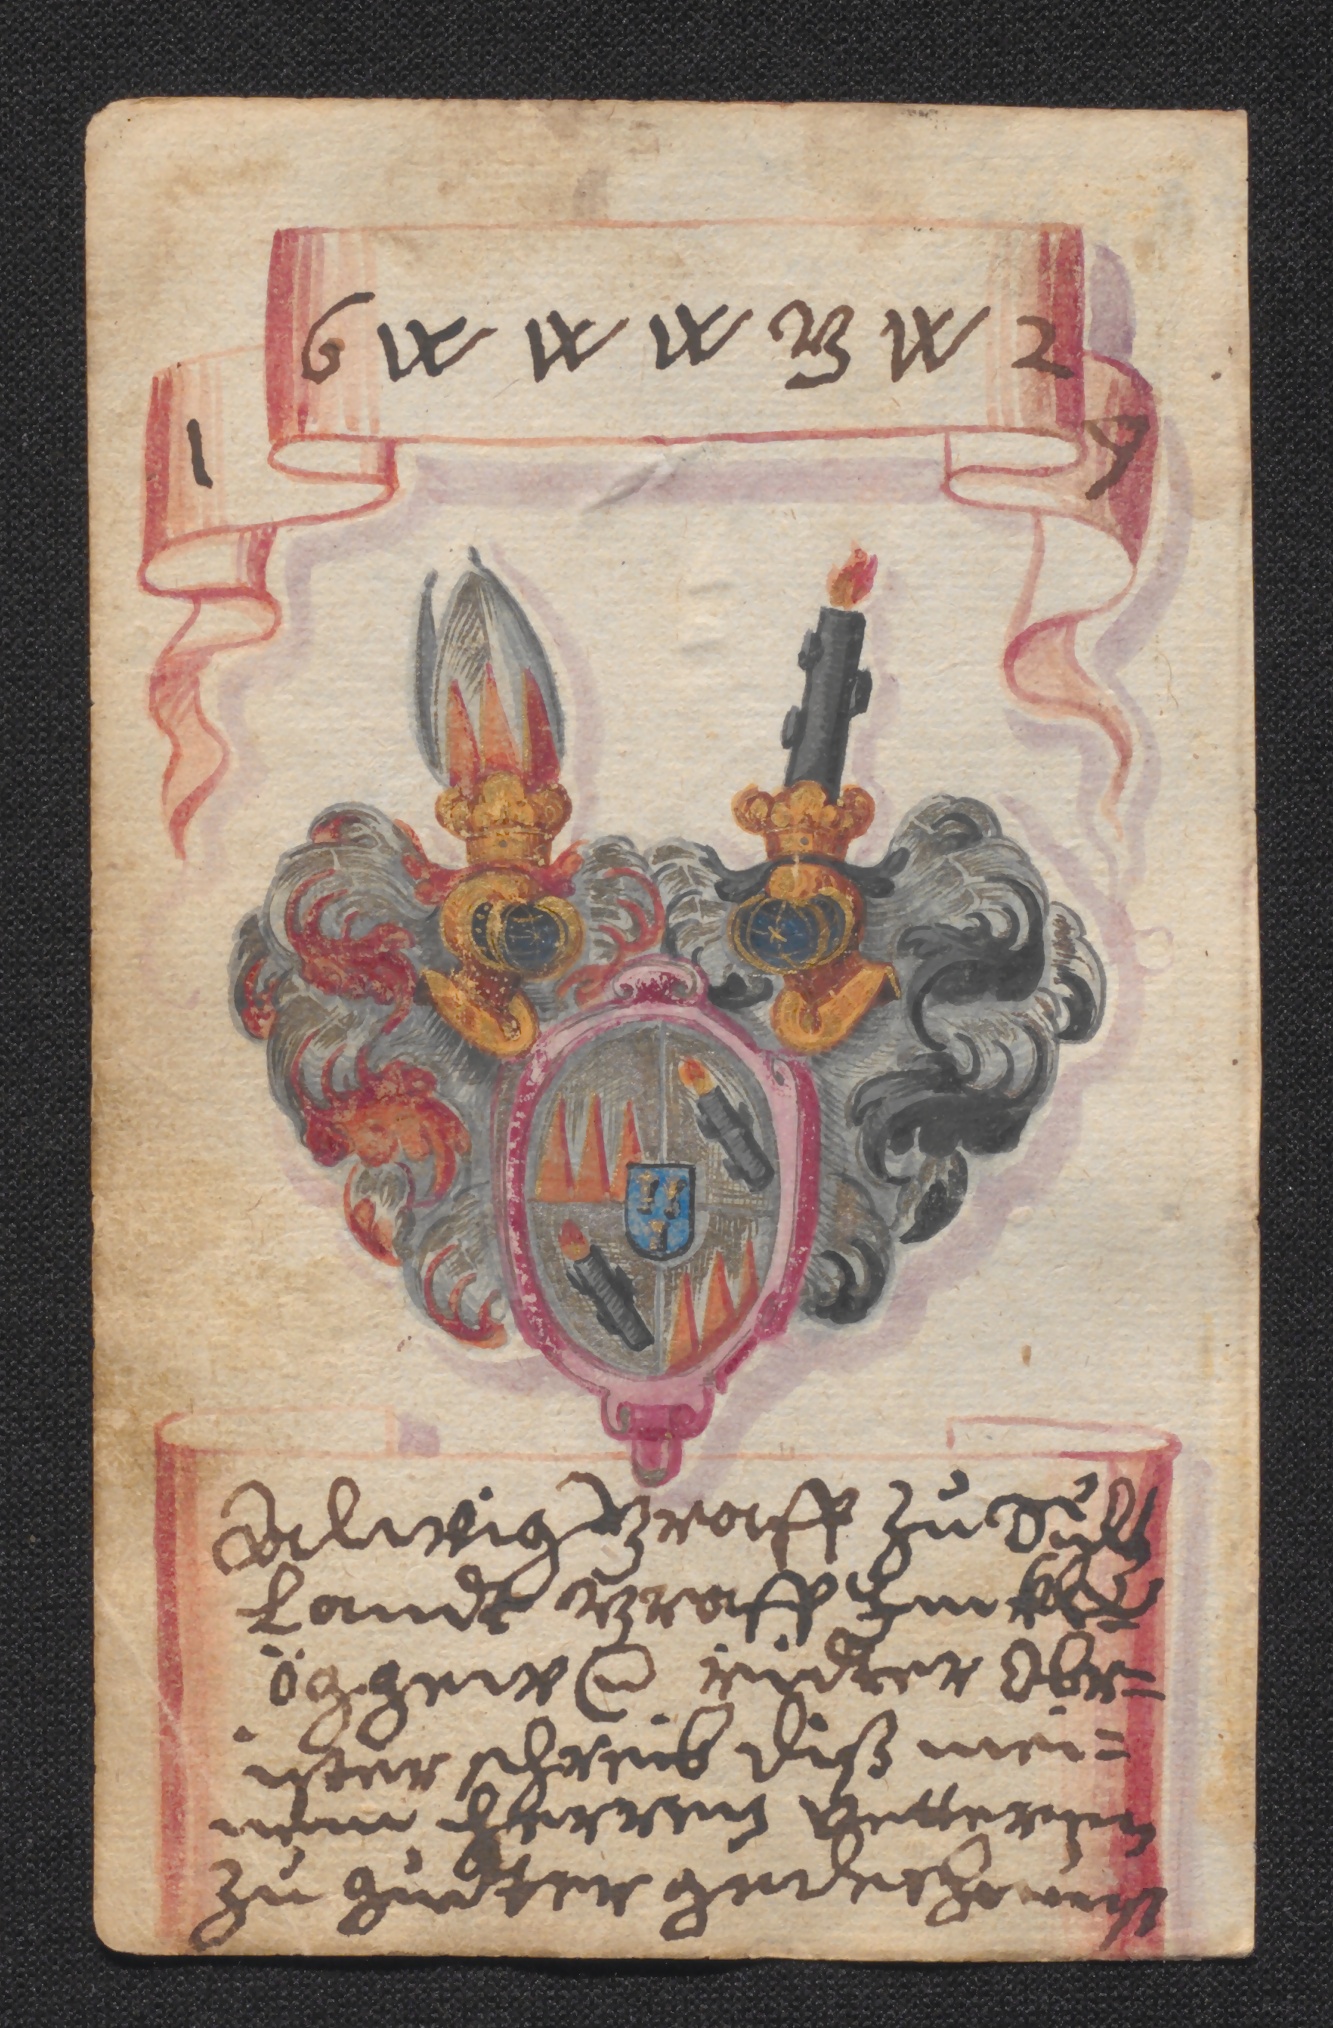 1 6 W W W G W 2 7
Alwig Graff zu Sultz
Landt Graff Im Klet
öggeuw ridter Obr=
ister schreib diß mei=
nem Herren Vetteren
zu gudter gedechtnuß